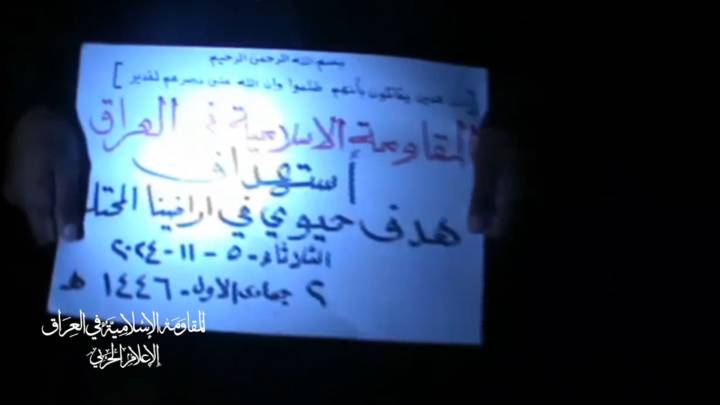 بسم الله الرحمن الرحيم
يقاتلون بأنهم ظلموا وان الله على نصرهم لقدير ]
المقاومة الاسلامية في العراق
أستهداف
هدف حيوي في اراضينا المحتلـ
الثلاثاء - ٥ - ١١ - ٢٠٢٤
٢ جمادى الاول - ١٤٤٦ هـ
المقاومة الإسلامية في العراق
الإعلام الحربي